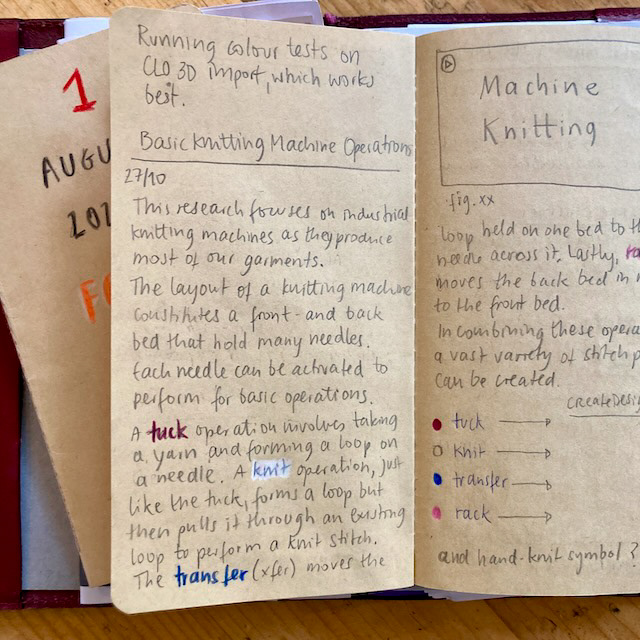 1
AUGU
202
Fo
Running colour tests on
CLO 3D import, which works
best.
Basic Knitting Machine Operations
27/10
This research focuses on industrial
knitting machines as they produce
most of our garments.
The layout of a knitting machine
constitutes a front- and back
bed that hold many needles.
Each needle can be activated to
perform for basic operations.
A tuck operation involves taking
a yarn and forming a loop on
a needle. A knit operation, just
like the tuck, forms a loop but
then pulls it through an existing
loop to perform a knit stitch.
The transfer (xfer) moves the
Machine
Knitting
fig.xx
loop held on one bed to th
needle across it. Lastly, ra
moves the back bed in r
to the front bed.
In combining these opera
a vast variety of stitch p
can be created.
CREATEDESI
tuck →
knit →
transfer →
rack →
and hand-knit symbol?